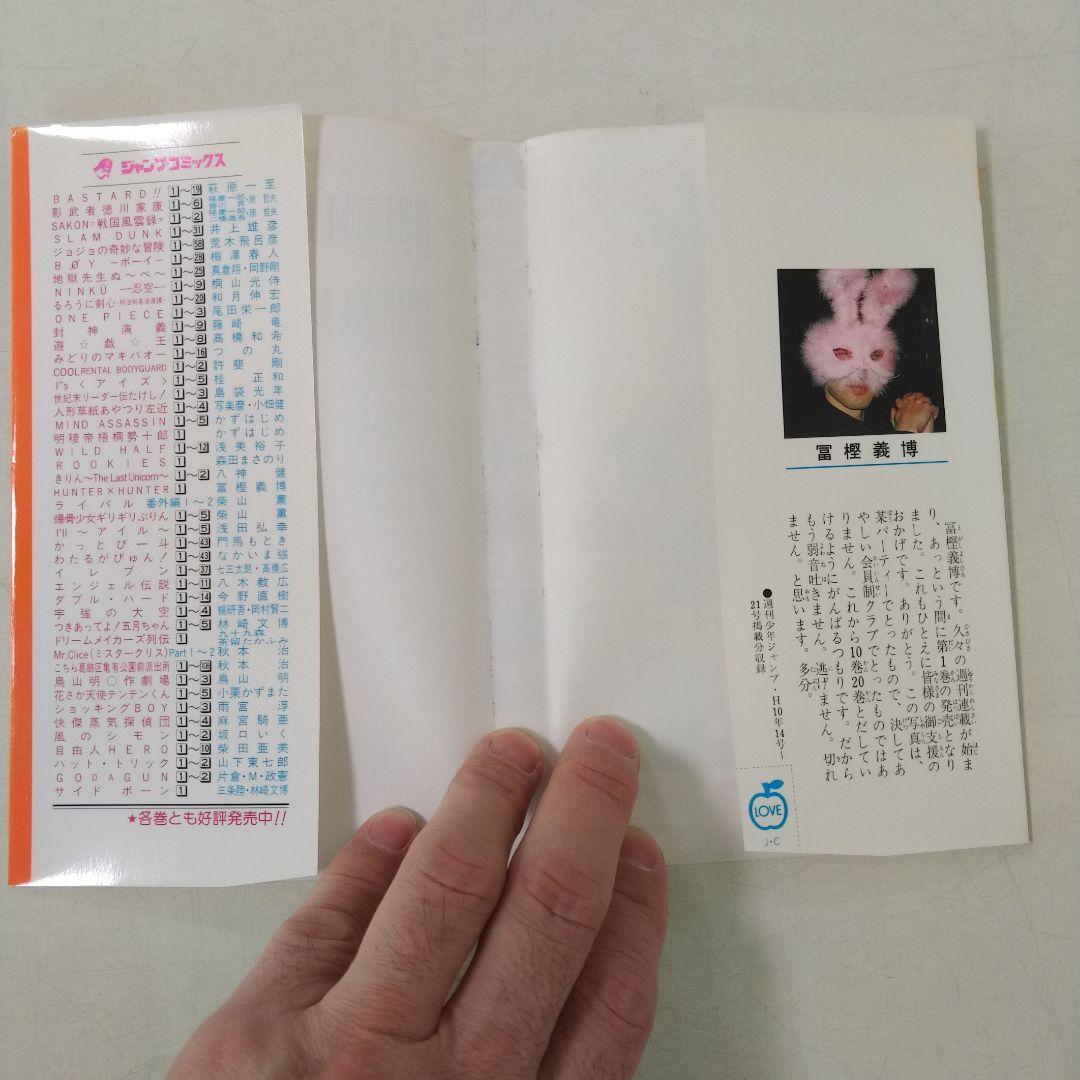 ジャンプ・コミックス
BASTARD!! 1〜19 萩原一至
影武者徳川家康 1〜6 隆慶一郎・原哲夫
SAKON=戦国風雲録= 1〜2 隆慶一郎・原哲夫
SLAM DUNK 1〜31 井上雄彦
ジョジョの奇妙な冒険 1〜58 荒木飛呂彦
BØY ―ボーイ― 1〜28 梅澤春人
地獄先生ぬ〜べ〜 1〜25 真倉翔・岡野剛
NINKU ―忍空― 1〜9 桐山光侍
るろうに剣心 ―明治剣客浪漫譚― 1〜20 和月伸宏
ONE PIECE 1〜3 尾田栄一郎
封神演義 1〜9 藤崎竜
遊☆戯☆王 1〜8 高橋和希
みどりのマキバオー 1〜16 つの丸
COOL RENTAL BODYGUARD 1〜2 許斐剛
I"s〈アイズ〉 1〜5 桂正和
世紀末リーダー伝たけし! 1〜3 島袋光年
人形草紙あやつり左近 1〜4 写楽麿・小畑健
MIND ASSASSIN 1〜5 かずはじめ
明稜帝梧桐勢十郎 1 かずはじめ
WILD HALF 1〜12 浅美裕子
ROOKIES 1 森田まさのり
きりん〜The Last Unicorn〜 1〜2 八神健
HUNTER×HUNTER 1 冨樫義博
ライバル 番外編1〜2 柴山薫
爆骨少女ギリギリぷりん 1〜5 柴山薫
I'll 〜アイル〜 1〜5 浅田弘幸
かっとび一斗 1〜43 門馬もとき
わたるがぴゅん! 1〜43 なかいま強
イレブン 1〜37 七三太朗・高橋広
エンジェル伝説 1〜11 八木教広
ダブル・ハード 1〜14 今野直樹
宇強の大空 1〜4 梶研吾・岡村賢二
つきあってよ!五月ちゃん 1〜5 林崎文博
ドリームメイカーズ列伝 1 九十九森 茶留たかふみ
Mr.Clice(ミスタークリス) Part1〜2 秋本治
こちら葛飾区亀有公園前派出所 1〜108 秋本治
鳥山明○作劇場 1〜3 鳥山明
花さか天使テンテンくん 1〜5 小栗かずまた
ショッキングBOY 1〜3 雨宮淳
快傑蒸気探偵団 1〜4 麻宮騎亜
風のシモン 1〜2 坂口いく
自由人HERO 1〜10 柴田亜美
ハット・トリック 1〜2 山下東七郎
GODAGUN 1〜2 片倉・M・政憲
サイドボーン 1 三条陸・林崎文博
★各巻とも好評発売中!!
冨樫義博
冨樫義博です。久々の週刊連載が始ま
り、あっという間に第1巻の発売となり
ました。これもひとえに皆様の御支援の
おかげです。ありがとう。この写真は、
某パーティーでとったもので、決してあ
やしい会員制クラブでとったものではあ
りません。これから10巻20巻とだしてい
けるようにがんばるつもりです。だから
もう弱音吐きません。逃げません。切れ
ません。と思います。多分。
●週刊少年ジャンプ・H10年14号〜
21号掲載分収録
LOVE
J・C